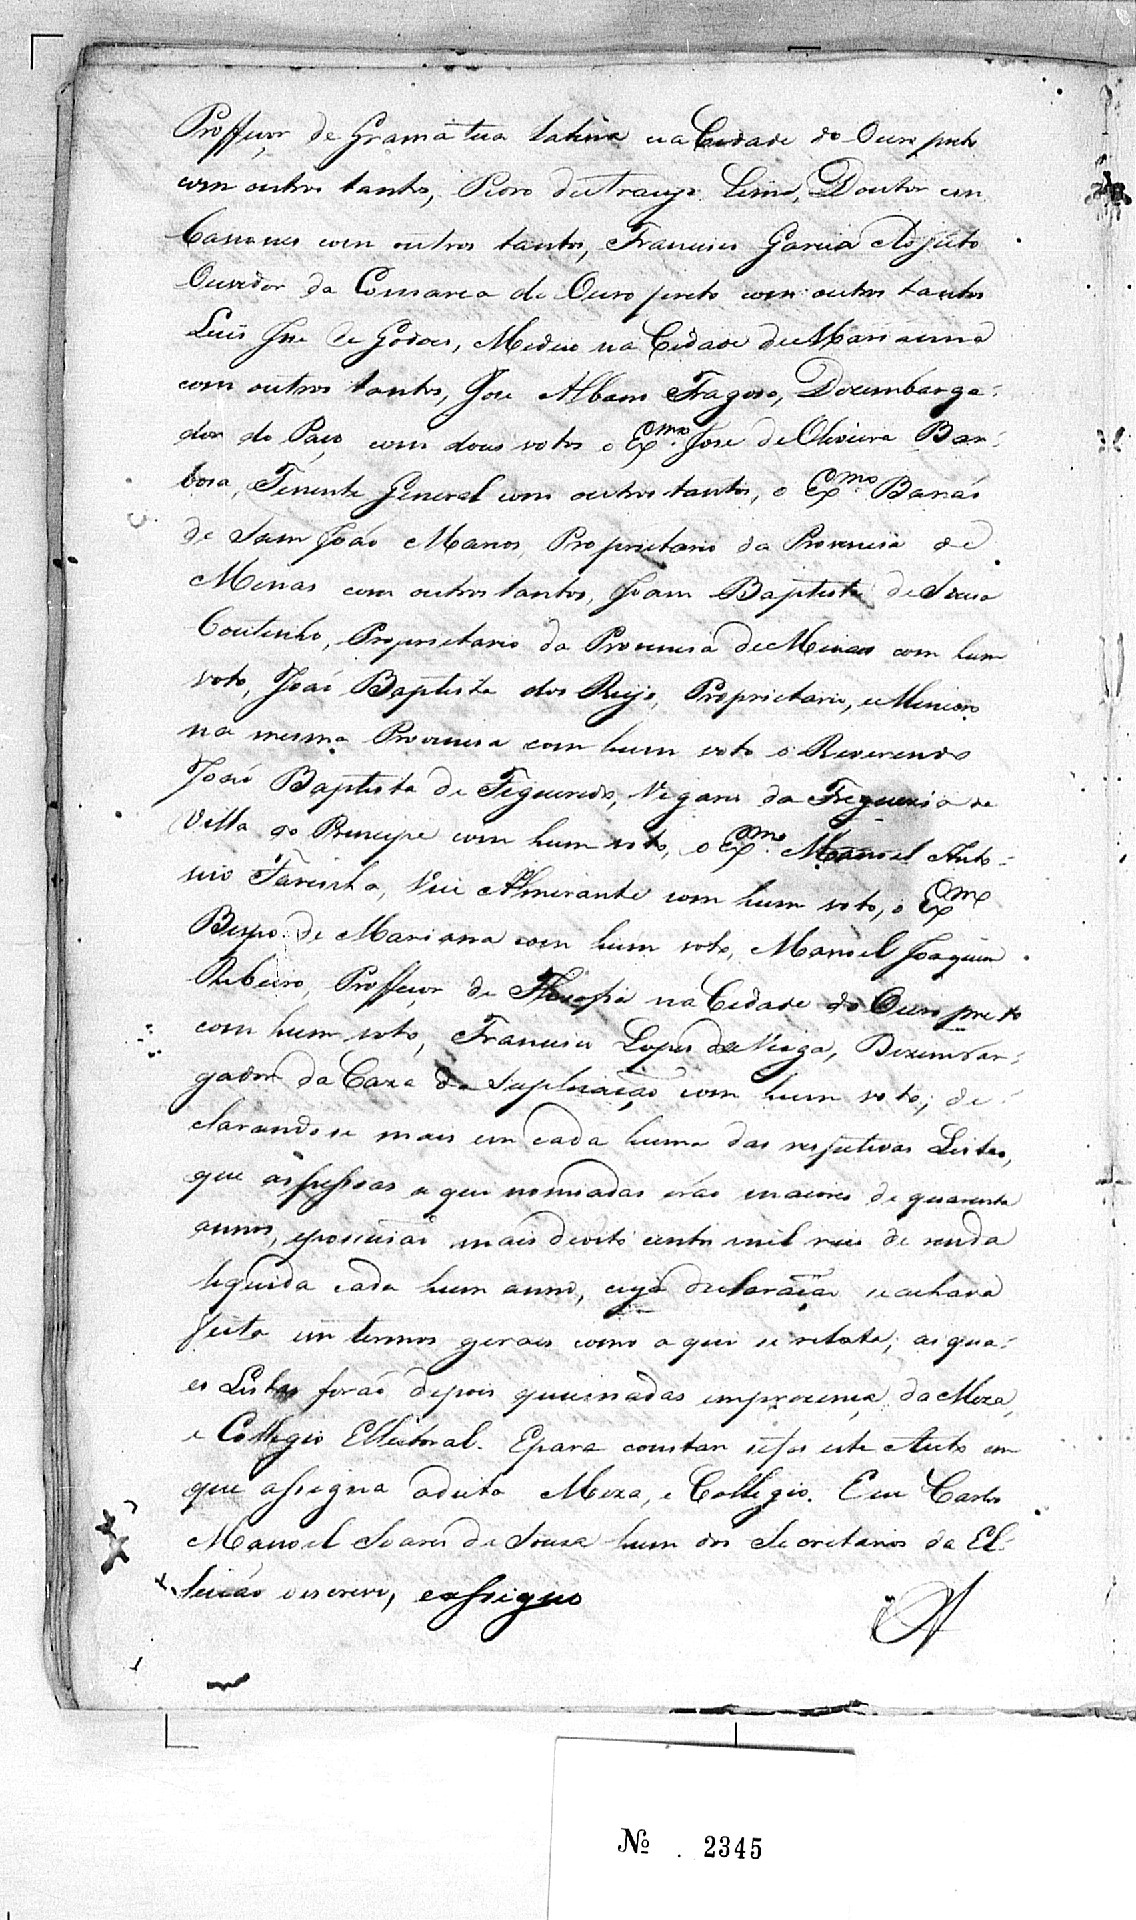 Professor de Gramatica Latina na Cidade do Ouro preto
com outros tantos, Pedro de Araujo Lima, Doutor em
Canones com outros tantos, Francisco Garcia Adjuto
Ouvidor da Comarca do Ouro preto com outros tantos
Luis Jose de Godoes, Medico na Cidade de Marianna
com outros tantos, Jose Albano Fragoso, Dezembarga-
dor do Paço, com dous votos o Exmo. Jose de Oliveira Bar-
boza, Tenente General com outros tantos, o Exmo. Barão
de Sam João Marcos, Proprietario da Provincia de
Minas com outros tantos, Joam Baptista de Souza
Coutinho, Proprietario da Provincia de Minas com hum
voto, João Baptista dos Reys, Proprietario, e Mineiro
na mesma Provincia com hum voto o Reverendo
João Baptista de Figueiredo, Vigario da Freguezia de
Villa do Principe com hum voto, o Exmo. Manoel Anto-
nio Farinha, Vice Almirante com hum voto, o Exmo
Bispo de Mariana com hum voto, Manoel Joaquim
Ribeiro, Professor de Filozofia na Cidade do Ouro preto
com hum voto, Francisco Lopes da Veiga, Dezembar-
gador da Caza da Suplicação com hum voto; de-
clarando se mais em cada huma das respectivas Listas,
que as pessoas a qui nomiadas érão maiores de quarenta
annos, e possuião mais de oito centos mil reis de renda
liquida cada hum anno, cuja declaração se achava
feita em termos geraes como a qui se relata; as qua-
es Listas forão depois queimadas em prezença da Meza,
e Collegio Elleitoral. E para constar se fes este Auto em
que assigna a dita Meza, e Collegio. Eu Carlos
Manoel Soares de Souza hum dos Secretarios da El-
leição o escrevi, e assigno
Nº . 2345